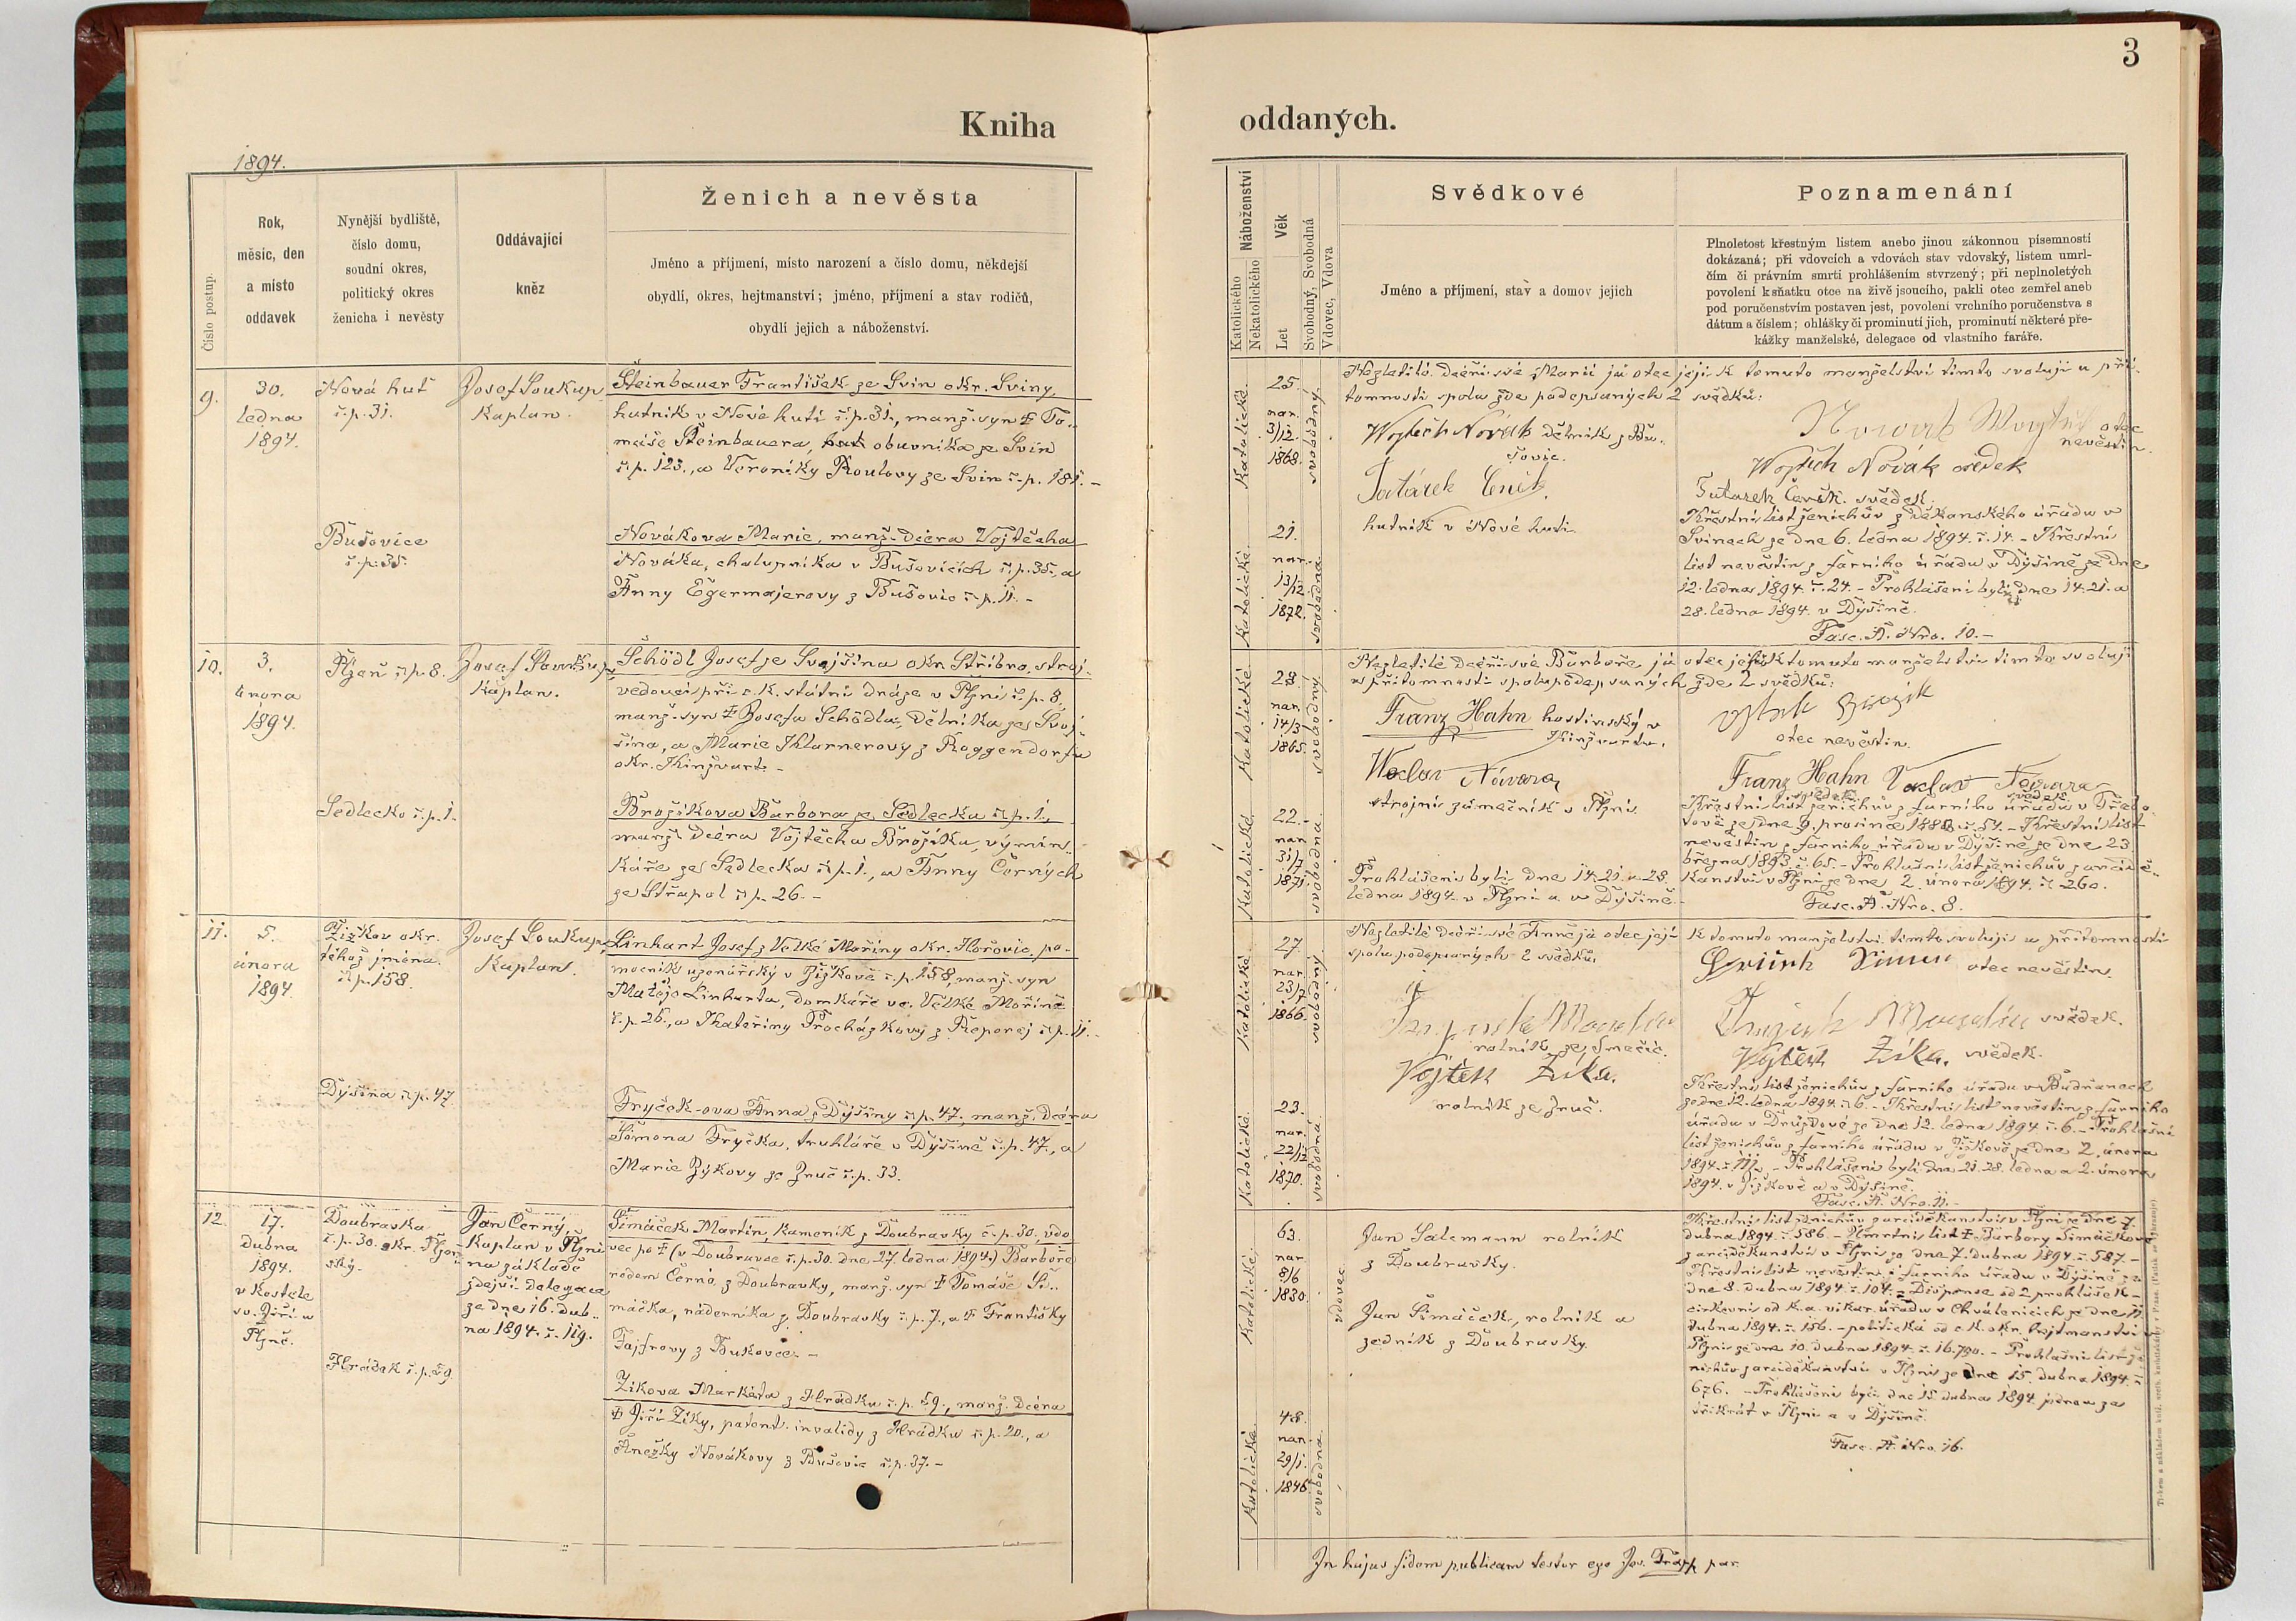 3
Kniha
oddaných.
1894.
Číslo postup.
Rok,
měsíc, den
a místo
oddavek
Nynější bydliště,
číslo domu,
soudní okres,
politický okres
ženicha i nevěsty
Oddávající
kněz
Ženich a nevěsta
Jméno a příjmení, místo narození a číslo domu, někdejší
obydlí, okres, hejtmanství; jméno, příjmení a stav rodičů,
obydlí jejich a náboženství.
Náboženství
Katolického
Nekatolického
Věk
Let
Svobodný, Svobodná
Vdovec, Vdova
Svědkové
Jméno a příjmení, stav a domov jejich
Poznamenání
Plnoletost křestným listem anebo jinou zákonnou písemností
dokázaná; při vdovcích a vdovách stav vdovský, listem umrl-
čím či právním smrti prohlášením stvrzený; při neplnoletých
povolení k sňatku otce na živě jsoucího, pakli otec zemřel aneb
pod poručenstvím postaven jest, povolení vrchního poručenstva s
dátum a číslem; ohlášky či prominutí jich, prominutí některé pře-
kážky manželské, delegace od vlastního faráře.
9.
30.
ledna
1894.
Nová huť
č.p. 31.
Josef Soukup,
kaplan.
Šteinbauer František ze Svin okr. Sviny,
hutník v Nové huti č.p. 31., manž. syn † To-
máše Šteinbauera, obuvníka ze Svin
č.p. 123., a Veroniky Koutovy ze Svin č.p. 181. -
Bušovice
č.p. 35.
Nováková Marie, manž. dcera Vojtěcha
Nováka, chalupníka v Bušovicích č.p. 35., a
Anny Egermajerovy z Bušovic č.p. 11. -
Katolické
25.
nar.
3/12.
1868.
svobodný
Katolické
21.
nar.
13/12
1872.
svobodná
Nezletilé dceři své Marii já otec její k tomuto manželství tímto svoluji u pří-
tomnosti spolu zde podepsaných 2 svědků:
Vojtěch Novák dělník z Bu-
šovic.
Tatárek Čeněk.
hutník v Nové huti
otec
nevěstin.
Vojtěch Novák svědek
Tatarek Čeněk. svědek.
Křestní list ženichův z děkanského úřadu v
Svinech ze dne 6. ledna 1894. č. 14. - Křestní
list nevěstin z farního úřadu v Dýšině ze dne
12. ledna 1894. č. 24. - Prohlášeni byli dne 14. 21. a
28. ledna 1894. v Dýšině.
Fasc. A. Nro. 10. -
10.
3.
února
1894.
Plzeň č.p. 8.
Josef Soukup,
kaplan.
Schödl Josef ze Svojšína okr. Stříbro, stroj-
vedoucí při c. k. státní dráze v Plzni č.p. 8.,
manž. syn † Josefa Schödla, dělníka ze Svoj-
šína, a Marie Klarnerovy z Roggendorfu
okr. Kinžvart. -
Sedlecko č.p. 1.
Brožíkova Barbora ze Sedlecka č.p. 1.,
manž. dcera Vojtěcha Brožíka, výmin-
káře ze Sedlecka č.p. 1., a Anny Černých
ze Střapol č.p. 26. -
Katolické
28.
nar.
14/3
1865.
svobodný
Katolické
22. -
nar.
31/7
1871.
svobodna
Nezletilé dceři své Barboře já otec její k tomuto manželství tímto svoluji
u přítomnosti spolupodepsaných zde 2 svědků:
Franz Hahn hostinský v
Kinžvartu.
Václav Návara,
strojní zámečník v Plzni.
Prohlášeni byli dne 14. 21. a 28.
ledna 1894. v Plzni a v Dýšině. -
otec nevěstin.
Franz Hahn
svědek
svědek
Křestní list ženichův z farního úřadu v Třebe-
nevěstin z farního úřadu v Dýšině ze dne 23.
března 1893. č. 65. - Prohlašní list ženichův z arcidě-
kanství v Plzni ze dne 2. února 1894. č. 260.
Fasc. A. Nro. 8.
11.
5.
února
1894.
Žižkov okr.
téhož jména.
č.p. 158.
Josef Soukup,
kaplan.
Linhart Josef z Velké Mořiny okr. Hořovic, po-
mocník uzenářský v Žižkově č.p. 158, manž. syn
Matěje Linharta, domkáře ve Velké Mořině
č.p. 26., a Kateřiny Procházkovy z Řeporej č.p. 11. -
Dýšina č.p. 47
Fryček-ova Anna z Dýšiny č.p. 47., manž. dcera
Šimona Fryčka, truhláře v Dýšině č.p. 47., a
Marie Zýkovy ze Zruč č.p. 33.
Katolické
27.
nar.
23/7
1866.
svobodný
Katolické
23.
nar.
22/12
1870.
svobodná
Nezletilé dceři své Anně já otec její k tomuto manželství tímto svoluji u přítomnosti
spolu podepsaných 2 svědků:
rolník ze Smečic.
Vojtěch Zika.
rolník ze Zruč.
otec nevěstin.
svědek.
Vojtěch Zika. svědek.
Křestní list ženichův z farního úřadu v Budňanech
ze dne 12. ledna 1894. č. 6. - Křestní list nevěstin z farního
úřadu v Druzdově ze dne 12. ledna 1894 č. 6. - Prohlašní
list ženichův z farního úřadu v Žižkově ze dne 2. února
1894. - Prohlášeni byli dne 21. 28. ledna a 2. února
1894. v Žižkově a v Dýšině.
Fasc. A. Nro. 11. -
12.
17.
dubna
1894.
v kostele
sv. Jiří u
Plzně.
Doubravka
č.p. 30. okr. Plzeň-
ský.
Jan Černý,
kaplan v Plzni
na základě
zdejší delegace
ze dne 16. dub-
na 1894. č. 119.
Šimáček Martin, kameník z Doubravky č.p. 30., vdo-
vec po † (v Doubravce č.p. 30. dne 27. ledna 1894.) Barboře
rodem Černé, z Doubravky, manž. syn † Tomáše Ši-
máčka, nádenníka z Doubravky č.p. 7., a † Františky
Fajfrovy z Bukovce. -
Hrádek č.p. 59.
Zíkova Markéta z Hrádku č.p. 59., manž. dcera
† Jiřího Ziky, patent. invalidy z Hrádku č.p. 20., a
Anežky Novákovy z Bušovic č.p. 37. -
Katolické
63.
nar.
8/6
1830.
vdovec
Katolické
48.
nar.
29/1.
1846
svobodna
Jan Salemann rolník
z Doubravky.
Jan Šimáček, rolník a
zedník z Doubravky.
Křestní list ženichův z arciděkanství v Plzni ze dne 7.
dubna 1894. č. 586. - Úmrtní list † Barbory Šimáčkové
z arciděkanství v Plzni ze dne 7. dubna 1894. č. 587. -
Křestní list nevěstin z farního úřadu v Dýšině ze
dne 8. dubna 1894. č. 104. - Dispense od 2 prohlášek -
církevní od k. a. vikar. úřadu v Chválenicích ze dne 11.
dubna 1894. č. 156. - politická od c. k. okr. hejtmanství v
Plzni ze dne 10. dubna 1894. č. 16.790. - Prohlašní list že-
nichův z arciděkanství v Plzni ze dne 15. dubna 1894. č.
676. - Prohlášeni byli dne 15. dubna 1894. jednou za
třikrát v Plzni a v Dýšině.
Fasc. A. Nro. 16.
In hujus fidem publicam testor ego Jos. par.